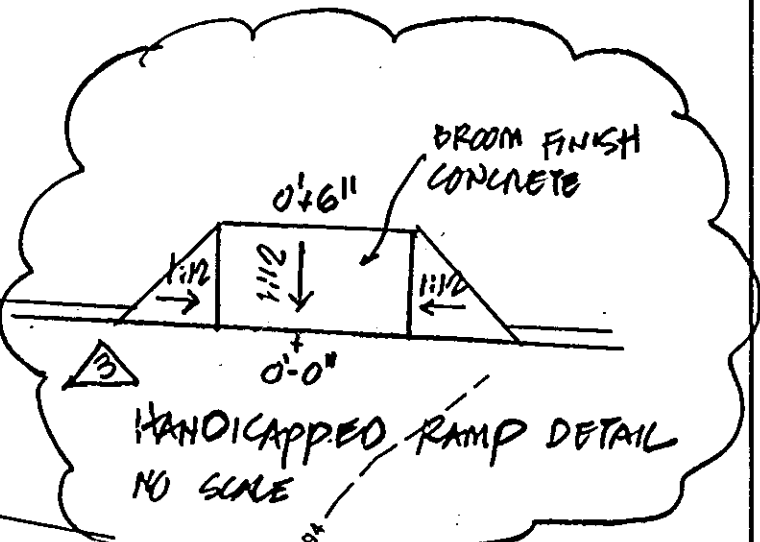 BROOM FINISH
CONCRETE
0'+6"
1:12
1:12
1:12
0'-0"
3
HANDICAPPED RAMP DETAIL
NO SCALE
94